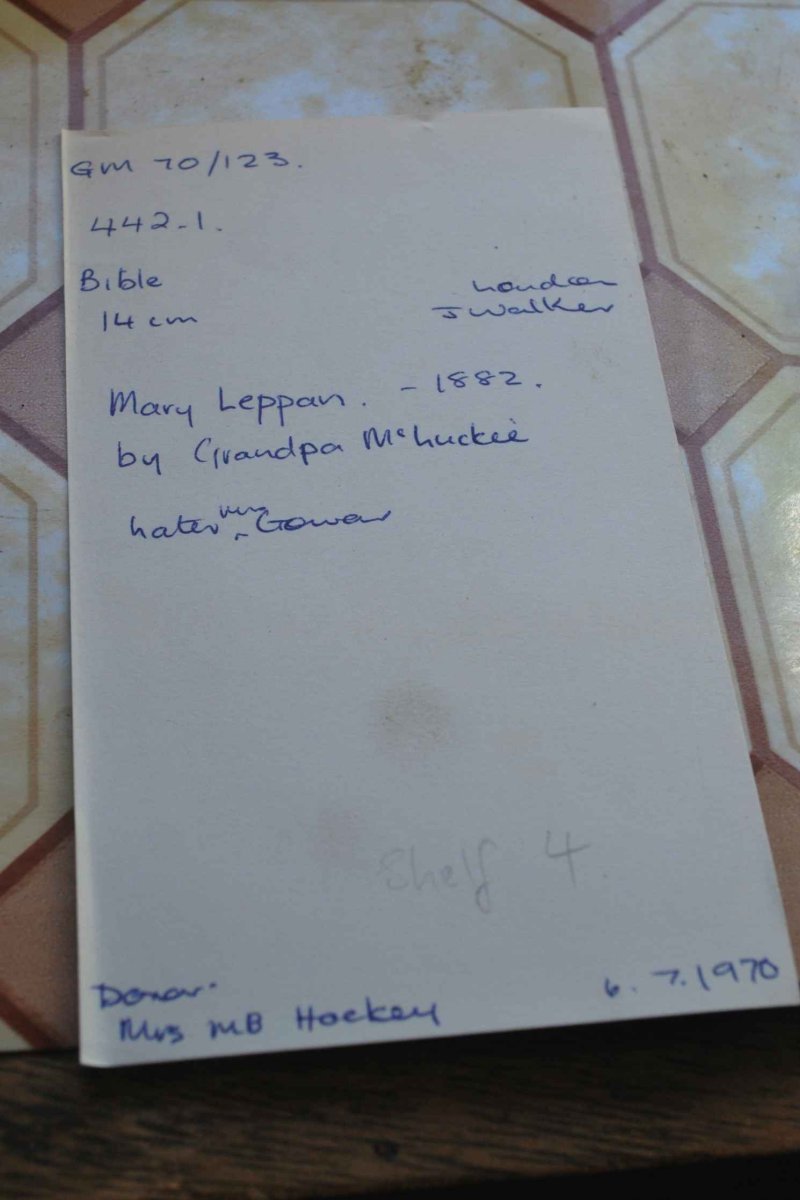 GM 70/123.
442-1.
Bible London
14 cm J Walker
Mary Leppan. - 1882.
by Grandpa McLuckie
Later Mrs Gowar
Shelf 4.
Donor.
Mrs MB Hockey 6.7.1970